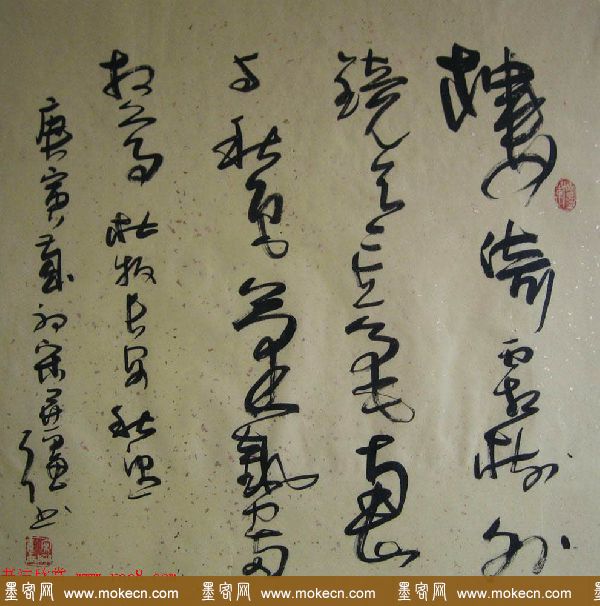 樓倚霜樹外
鏡天无一毫南山
与秋色氣勢两
相高 杜牧長安秋望
庚寅歲初宋书
墨客网 www.mokecn.com 墨客网 www.mokecn.com 墨客网 www.mokecn.com